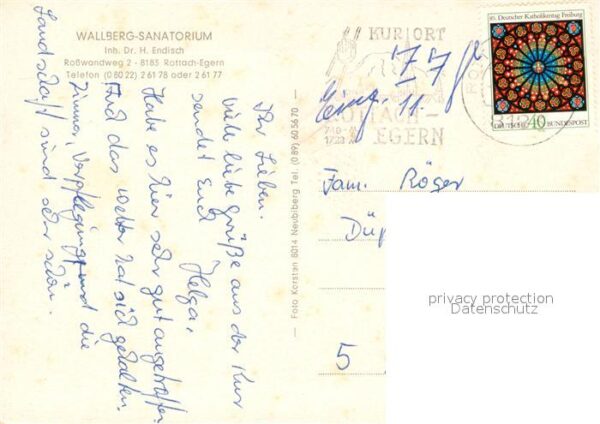 WALLBERG-SANATORIUM
Inh. Dr. H. Endisch
Roßwandweg 2 - 8183 Rottach-Egern
Telefon (0 80 22) 2 61 78 oder 2 61 77
Ihr Lieben.
viele liebe Grüße aus der Kur
sendet Euch Helga.
Habe es hier sehr gut angetroffen
und das Wetter hat sich gehalten.
Zimmer, Verpflegung und die
Landschaft sind sehr schön.
— Foto Kersten 8014 Neubiberg Tel. (0 89) 60 56 70 —
KURORT
ROTTACH-
EGERN
740-
1723 m
Eing. 11.
85. Deutscher Katholikentag Freiburg
DEUTSCHE 40 BUNDESPOST
Fam. Röger
Dü
5
privacy protection
Datenschutz